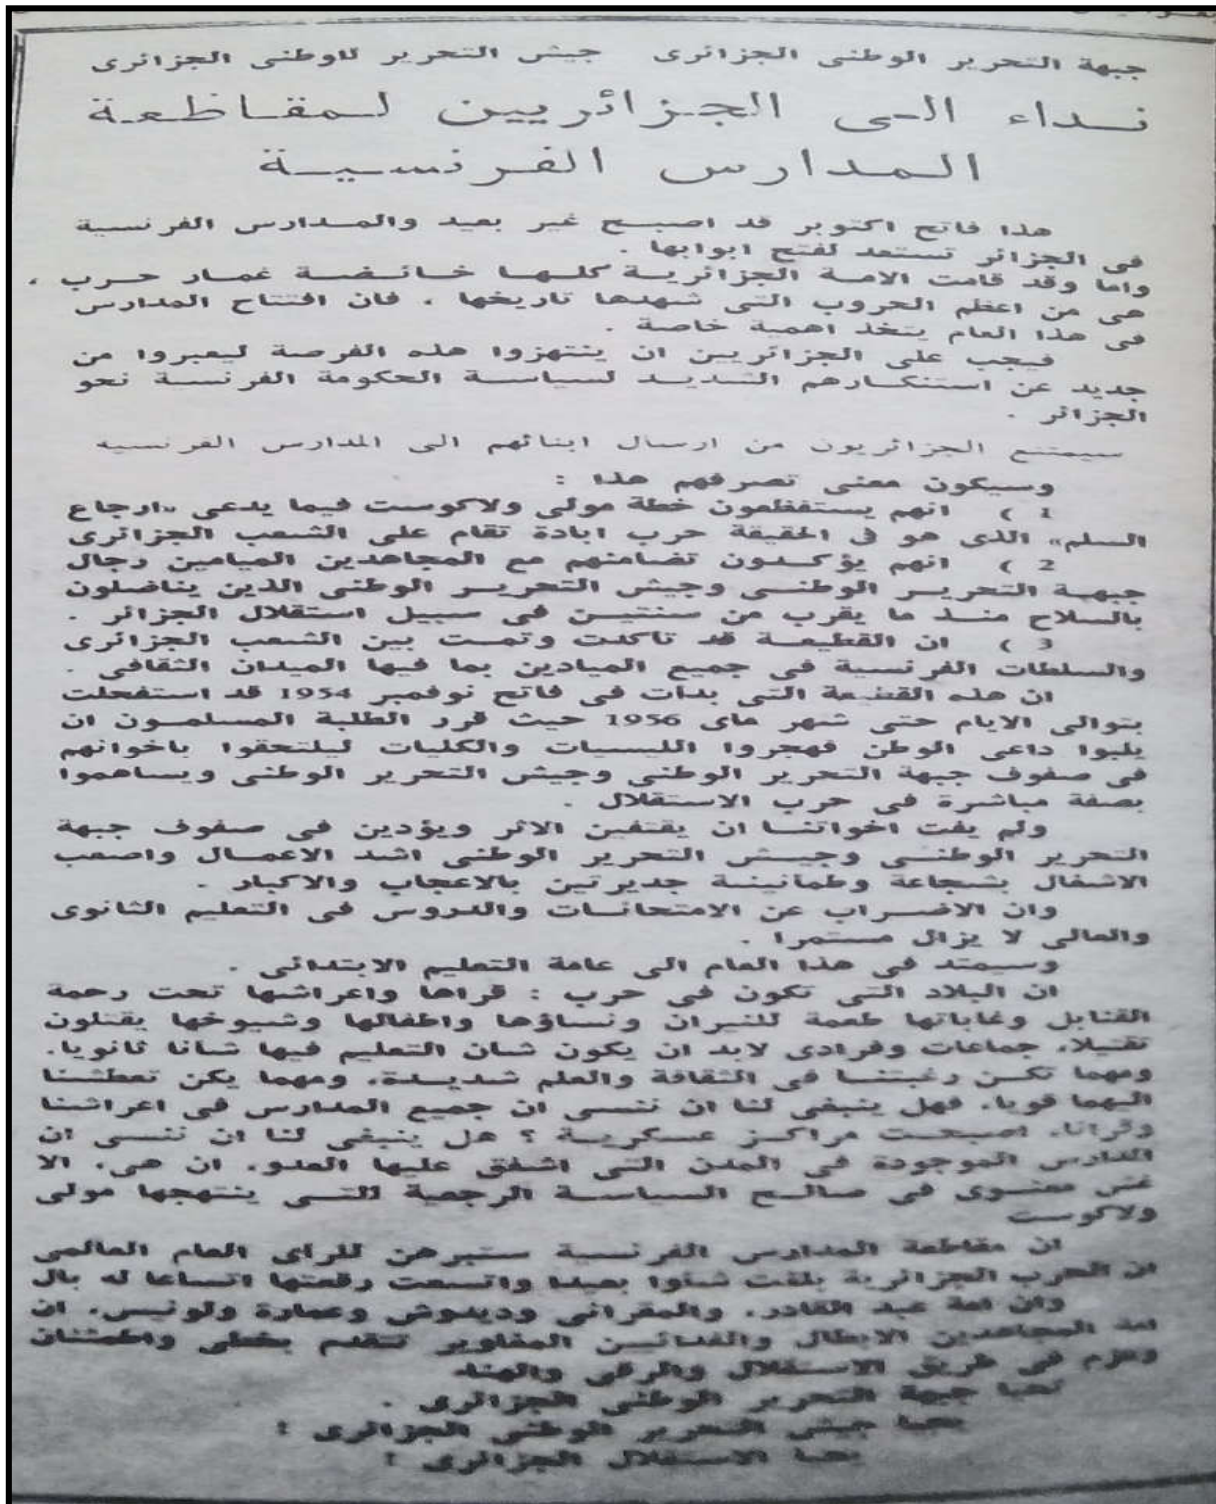 جبهة التحرير الوطنى الجزائرى جيش التحرير للوطنى الجزائرى
نداء الى الجزائريين لمقاطعة
المدارس الفرنسية
هذا فاتح اكتوبر قد اصبح غير بعيد والمدارس الفرنسية
فى الجزائر تستعد لفتح ابوابها .
واما وقد قامت الامة الجزائرية كلها خائضة غمار حرب ،
هى من اعظم الحروب التى شهدها تاريخها ، فان افتتاح المدارس
فى هذا العام يتخذ اهمية خاصة .
فيجب على الجزائريين ان ينتهزوا هذه الفرصة ليعبروا من
جديد عن استنكارهم الشديد لسياسة الحكومة الفرنسية نحو
الجزائر .
سيمتنع الجزائريون من ارسال ابنائهم الى المدارس الفرنسيه
وسيكون معنى تصرفهم هذا :
1 ) انهم يستفظعون خطة مولى ولاكوست فيما يدعى «ارجاع
السلم» الذى هو فى الحقيقة حرب ابادة تقام على الشعب الجزائرى
2 ) انهم يؤكدون تضامنهم مع المجاهدين الميامين رجال
جبهة التحرير الوطنى وجيش التحرير الوطنى الذين يناضلون
بالسلاح منذ ما يقرب من سنتين فى سبيل استقلال الجزائر .
3 ) ان القطيعة قد تاكدت وتمت بين الشعب الجزائرى
والسلطات الفرنسية فى جميع الميادين بما فيها الميدان الثقافى .
ان هذه القطيعة التى بدات فى فاتح نوفمبر 1954 قد استفحلت
بتوالى الايام حتى شهر ماى 1956 حيث قرر الطلبة المسلمون ان
يلبوا داعى الوطن فهجروا الليسيات والكليات ليلتحقوا باخوانهم
فى صفوف جبهة التحرير الوطنى وجيش التحرير الوطنى ويساهموا
بصفة مباشرة فى حرب الاستقلال .
ولم يفت اخواتنا ان يقتفين الاثر ويؤدين فى صفوف جبهة
التحرير الوطنى وجيش التحرير الوطنى اشد الاعمال واصعب
الاشغال بشجاعة وطمانينة جديرتين بالاعجاب والاكبار .
وان الاضراب عن الامتحانات والدروس فى التعليم الثانوى
والعالى لا يزال مستمرا .
وسيمتد فى هذا العام الى عامة التعليم الابتدائى .
ان البلاد التى تكون فى حرب : قراها واعراشها تحت رحمة
القنابل وغاباتها طعمة للنيران ونساؤها واطفالها وشيوخها يقتلون
تقتيلا، جماعات وفرادى لابد ان يكون شان التعليم فيها شانا ثانويا.
ومهما تكن رغبتنا فى الثقافة والعلم شديدة، ومهما يكن تعطشنا
اليهما قويا، فهل ينبغى لنا ان ننسى ان جميع المدارس فى اعراشنا
وقرانا، اصبحت مراكز عسكرية ؟ هل ينبغى لنا ان ننسى ان
المدارس الموجودة فى المدن التى اشفق عليها العدو، ان هى، الا
غش معنوى فى صالح السياسة الرجعية التى ينتهجها مولى
ولاكوست
ان مقاطعة المدارس الفرنسية ستبرهن للراى العام العالمى
ان الحرب الجزائرية بلغت شاوا بعيدا واتسعت رقعتها اتساعا له بال
وان امة عبد القادر، والمقرانى وديدوش وعمارة ولونيس، ان
امة المجاهدين الابطال والفدائيين المغاوير تتقدم بخطى واطمئنان
وعزم فى طريق الاستقلال والرقى والهناء
تحيا جبهة التحرير الوطنى الجزائرى .
يحيا جيش التحرير الوطنى الجزائرى !
يحيا الاستقلال الجزائرى !